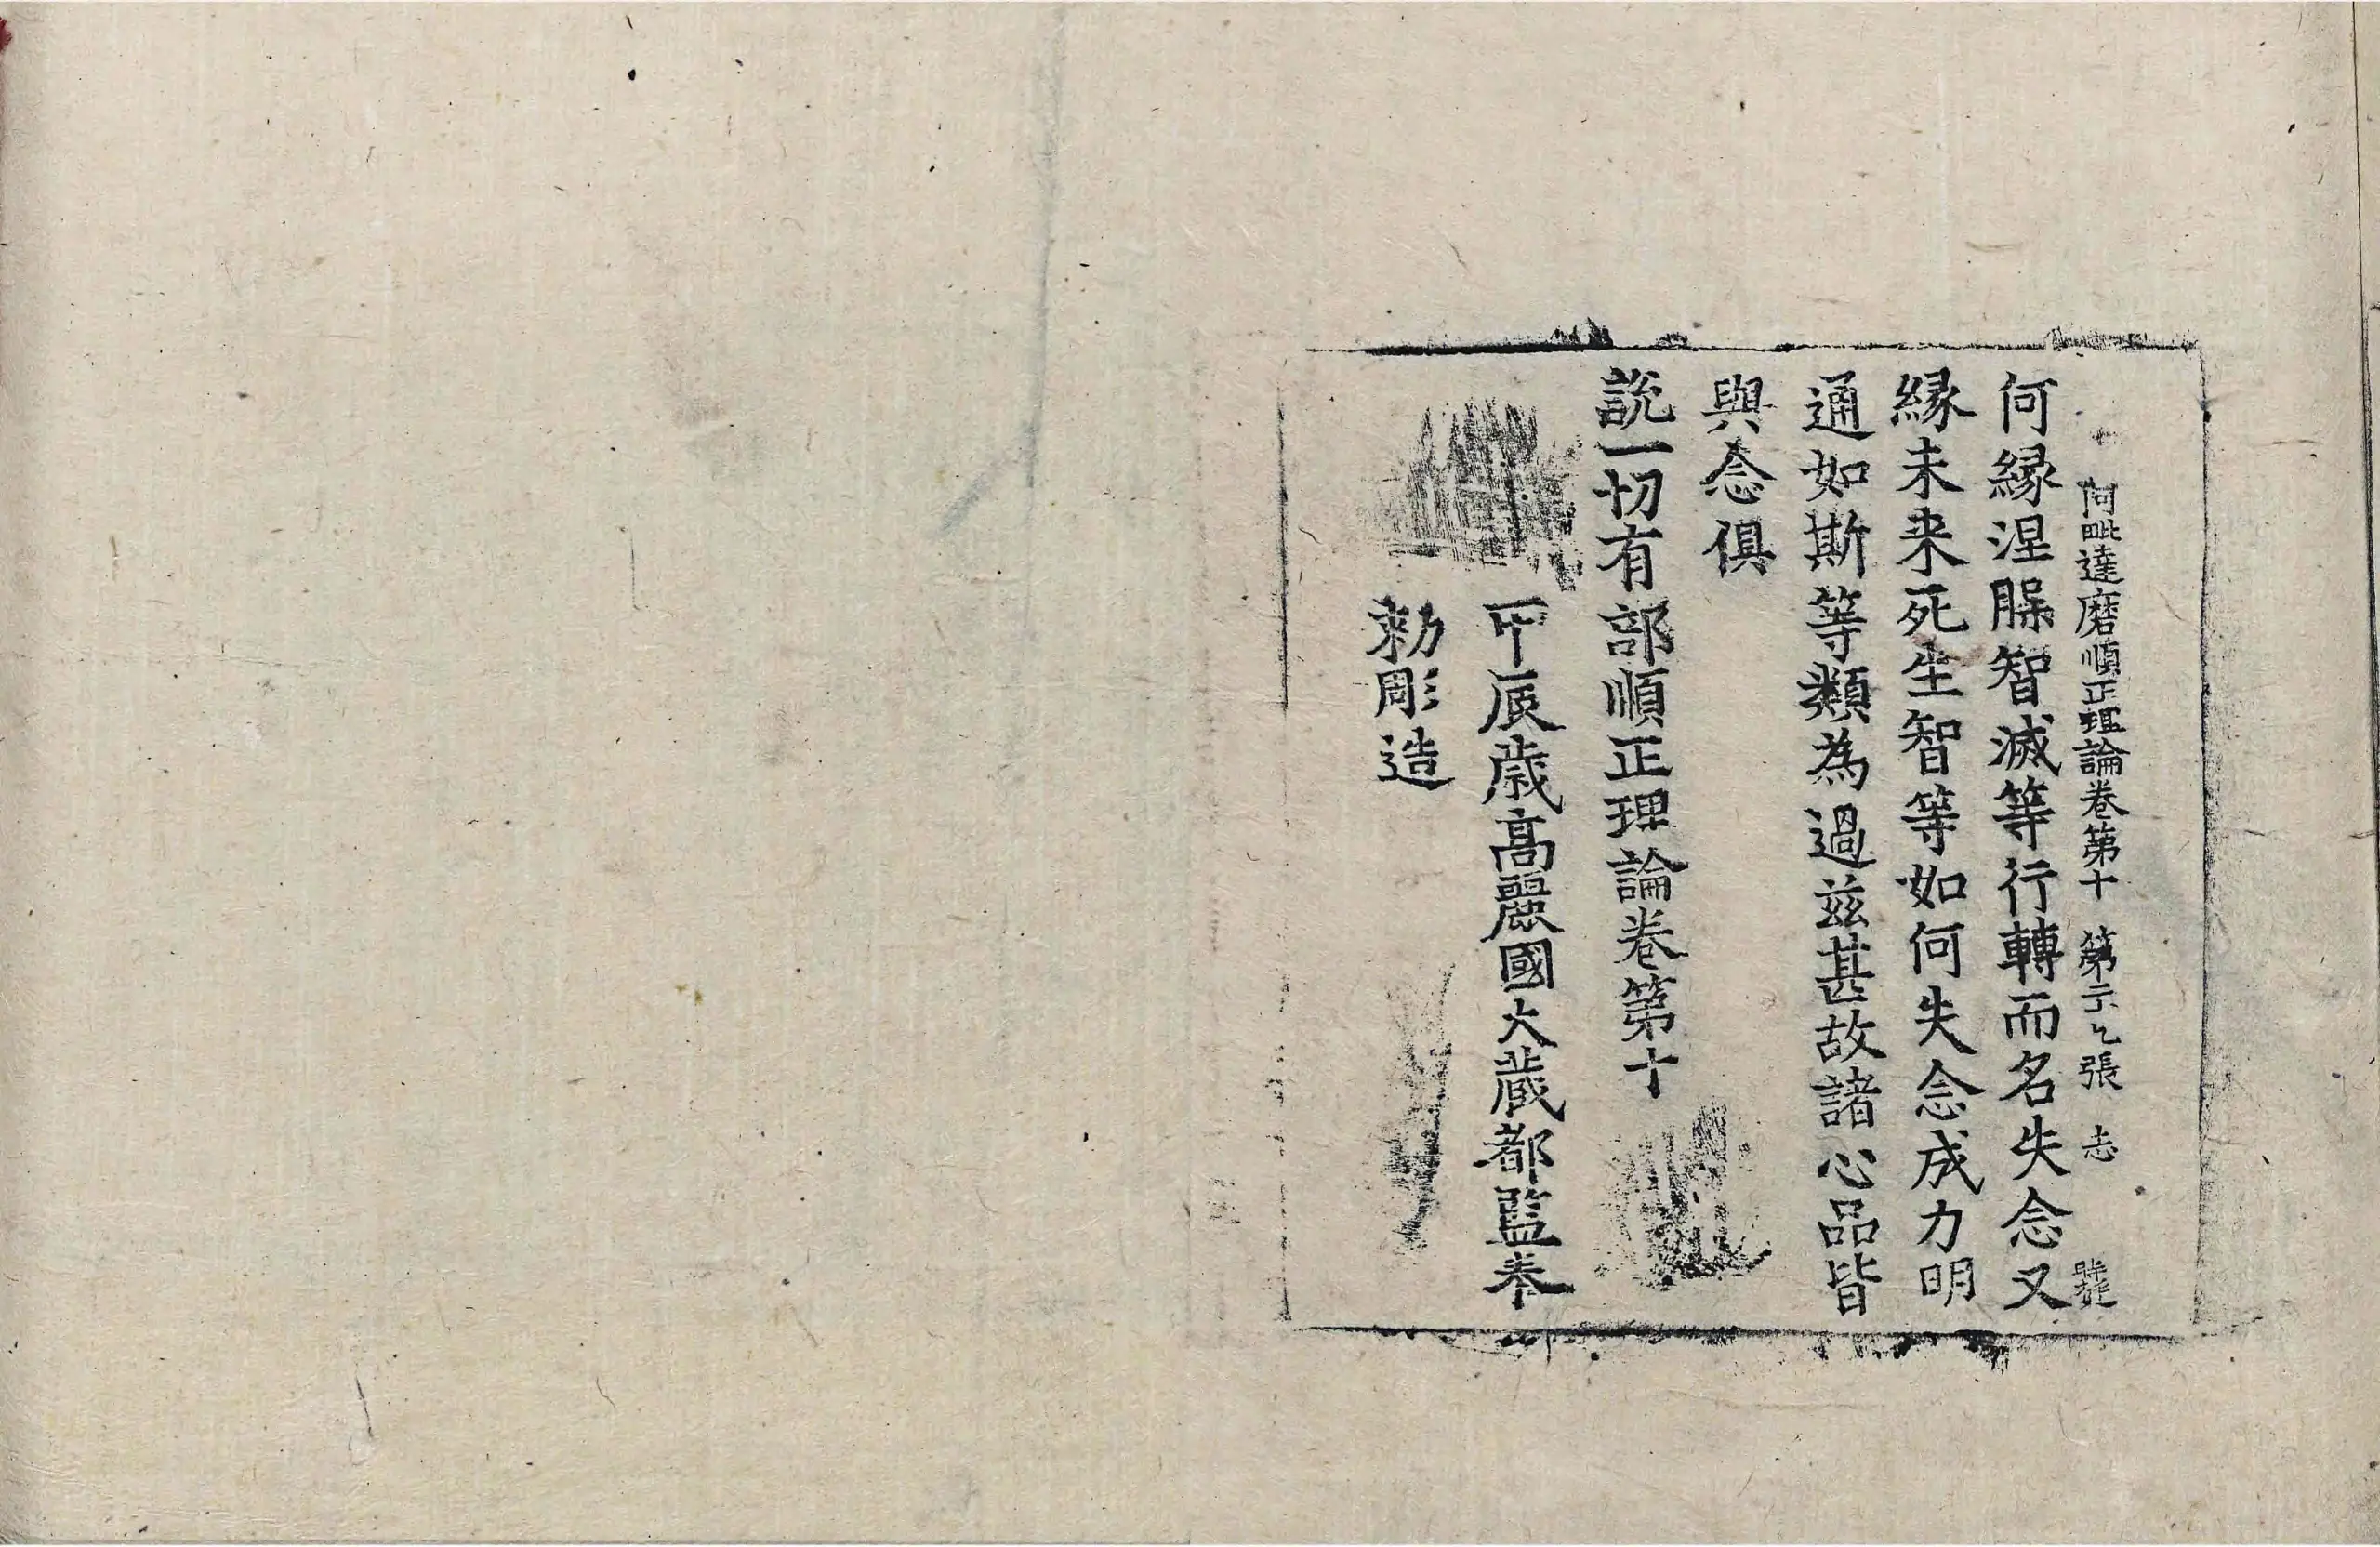 阿毗達磨順正理論卷第十 第二十 張 志
何縁涅腂智滅等行轉而名失念又
縁未来死生智等如何失念成力明
通如斯等類為過兹甚故諸心品皆
與念俱
說一切有部順正理論卷第十
甲辰歳高麗國大蔵都監奉
勑彫造